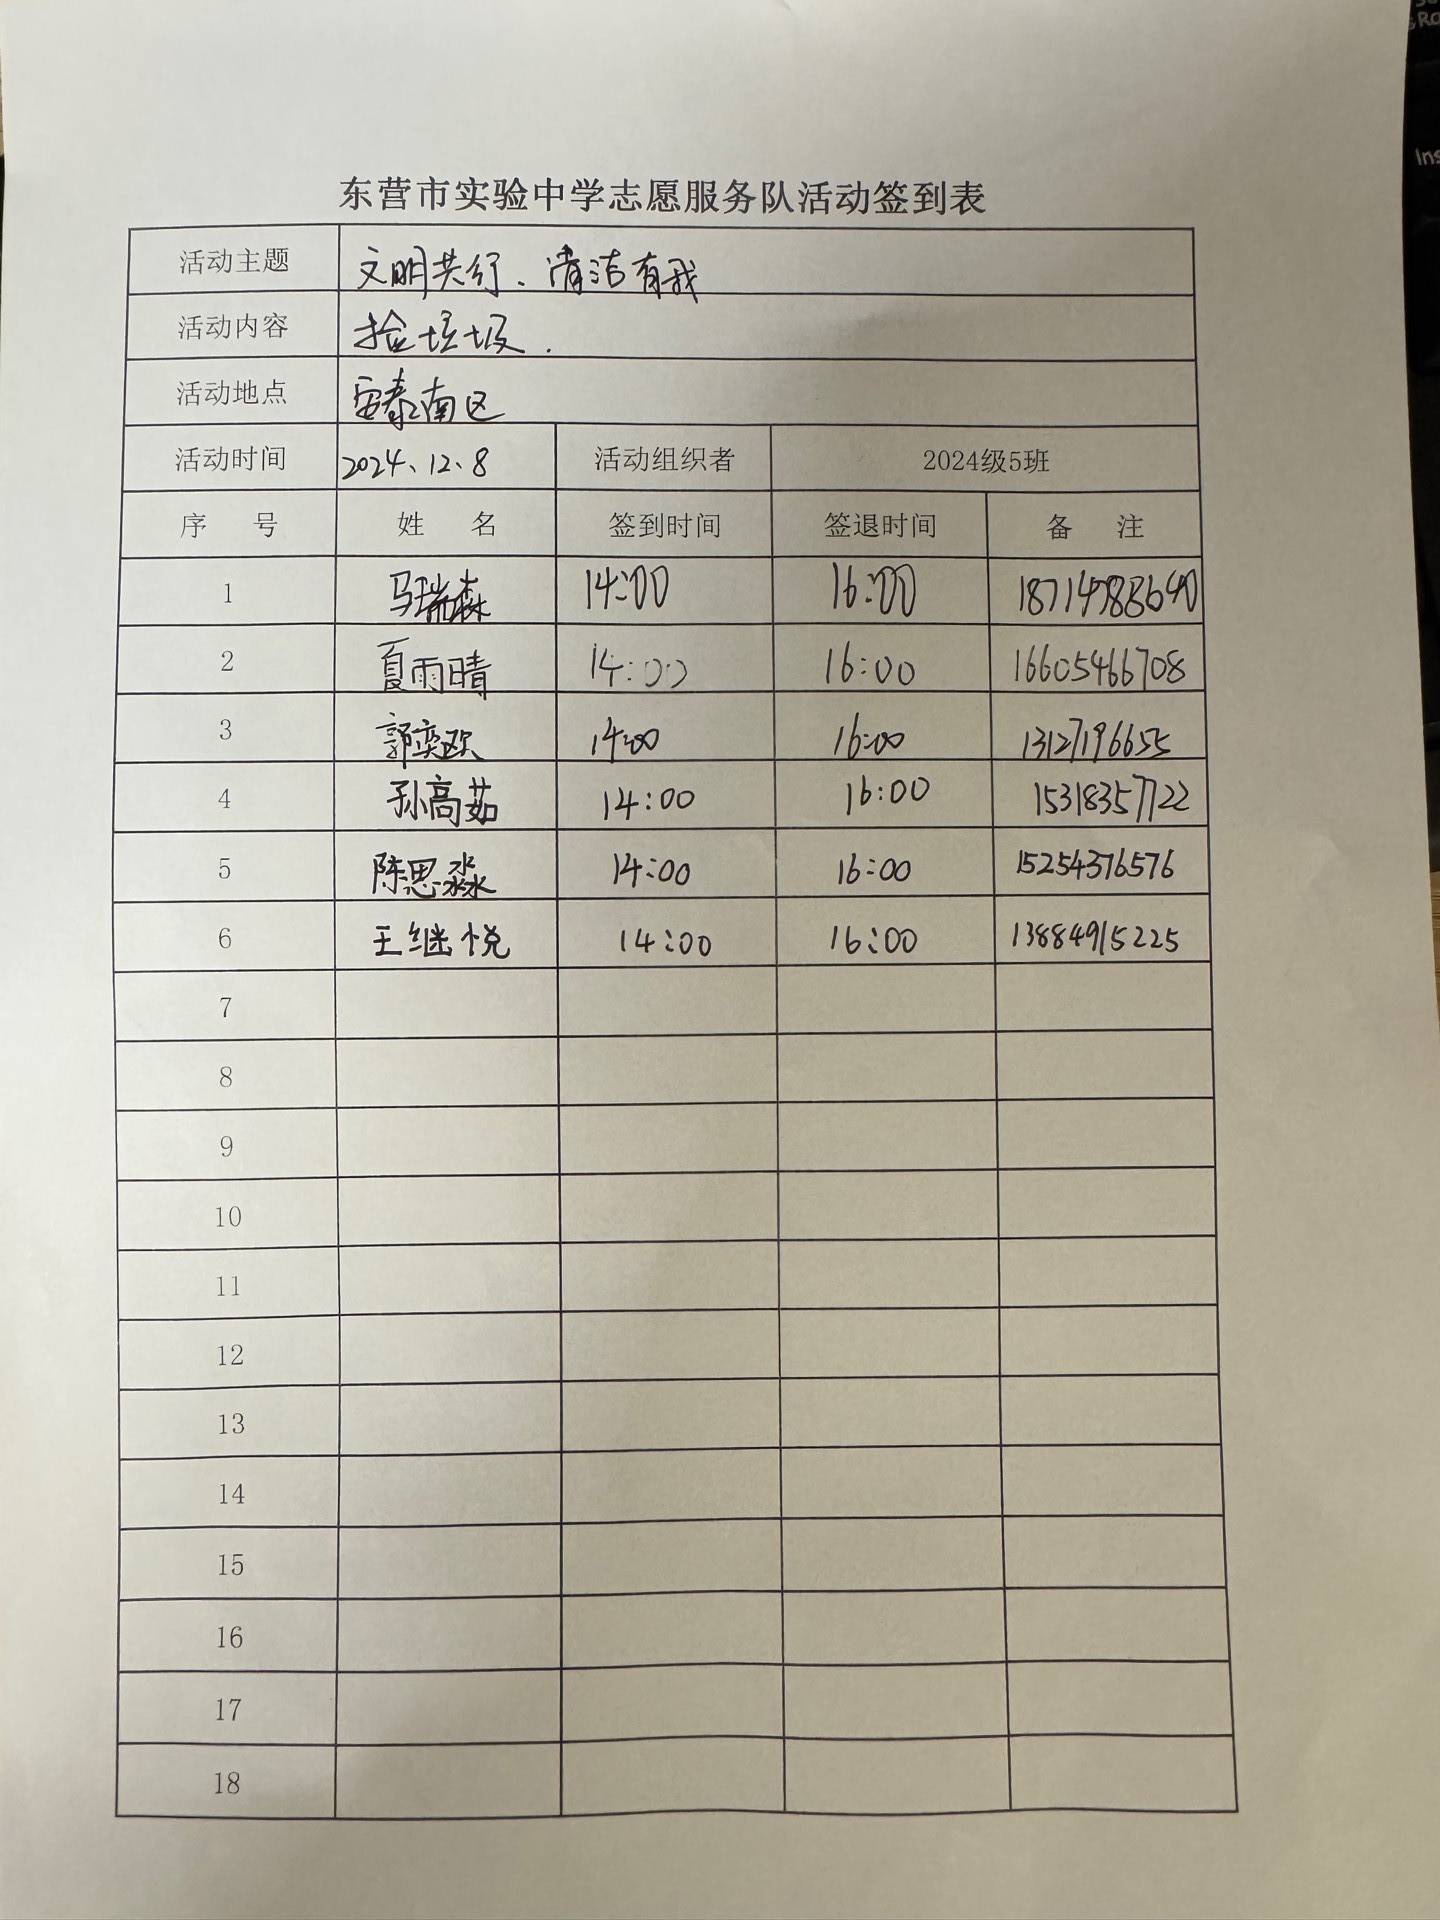 东营市实验中学志愿服务队活动签到表
活动主题 文明共行、清洁有我
活动内容 捡垃圾.
活动地点 安泰南区
活动时间 2024、12、8 活动组织者 2024级5班
序 号 姓 名 签到时间 签退时间 备 注
1 马瑞森 14:00 16:00
2 夏雨晴 14:00 16:00 16605466708
3 郭奕欧 14:00 16:00 13127196655
4 孙高茹 14:00 16:00 15318357722
5 陈思淼 14:00 16:00 15254376576
6 王继悦 14:00 16:00 13884915225
7
8
9
10
11
12
13
14
15
16
17
18
Ins